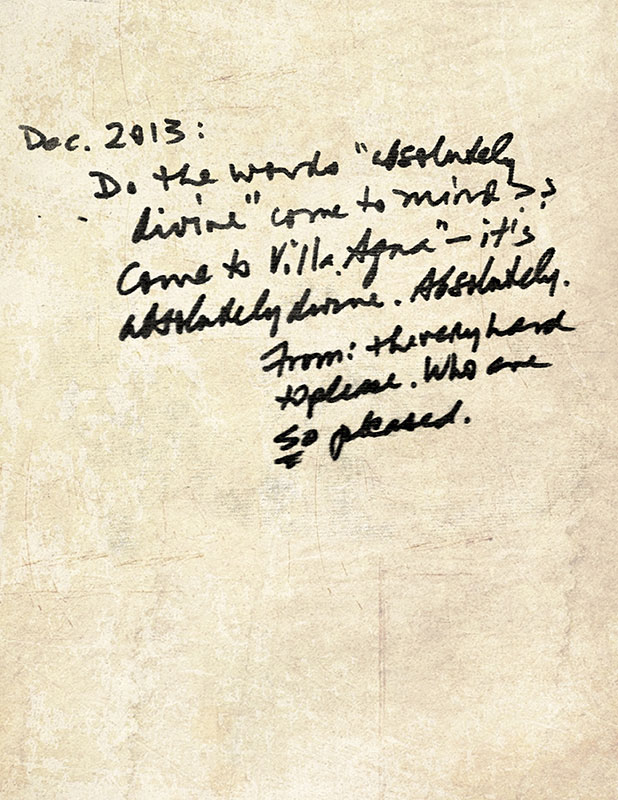 Dec. 2013:
Do the words "absolutely
divine" come to mind??
Come to Villa Agua" – it's
absolutely divine. Absolutely.
From: the very hard
to please. Who are
So pleased.